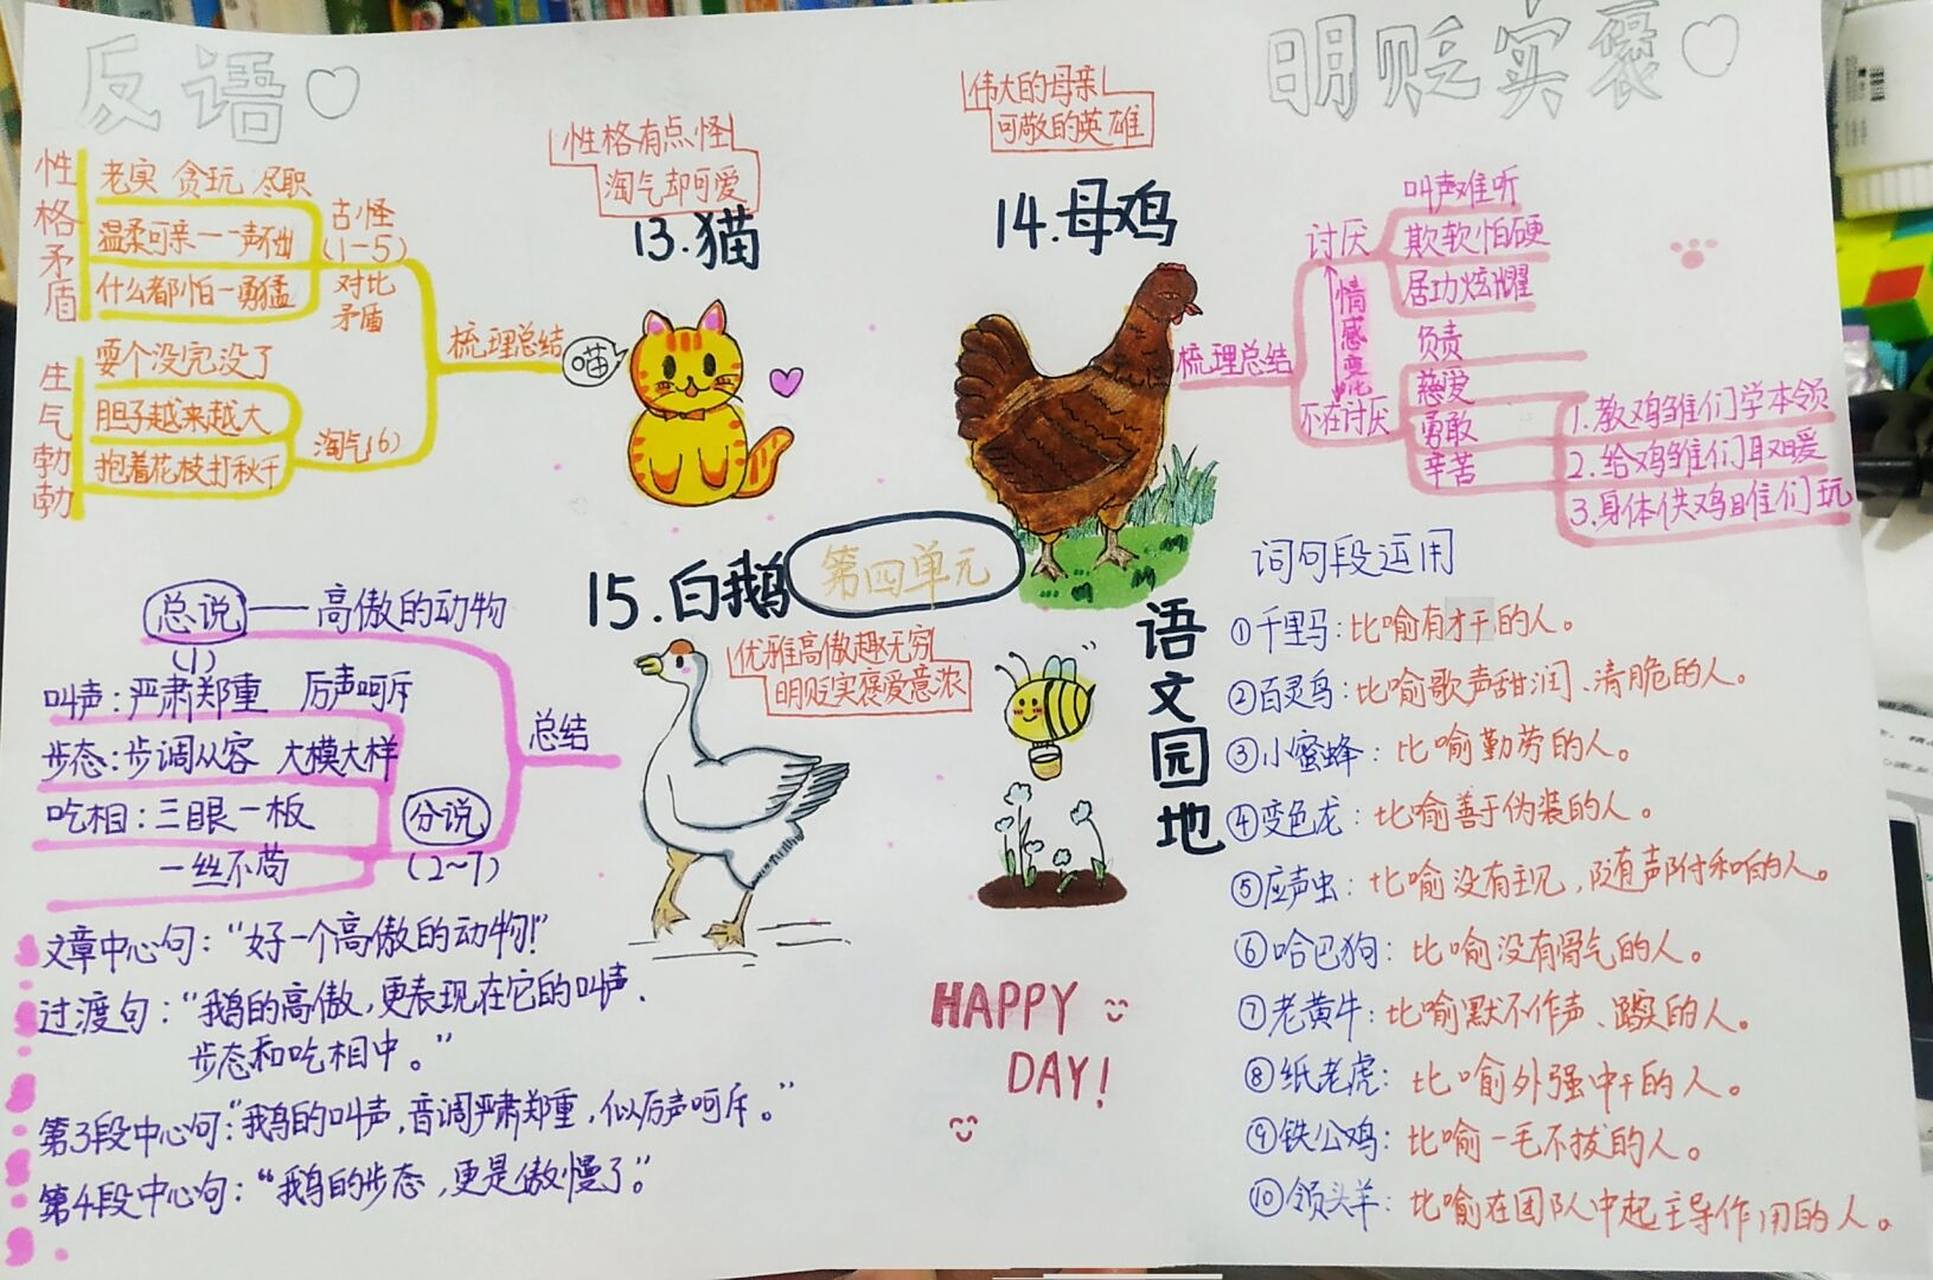 反语
明贬实褒
性格有点怪
淘气却可爱
13.猫
性格矛盾
老实 贪玩 尽职
温柔可亲——一声不出
什么都怕—勇猛
古怪
(1-5)
对比
矛盾
生气勃勃
耍个没完没了
胆子越来越大
抱着花枝打秋千
淘气(6)
梳理总结
喵
伟大的母亲
可敬的英雄
14.母鸡
梳理总结
讨厌
叫声难听
欺软怕硬
居功炫耀
情感变化
不在讨厌
负责
慈爱
勇敢
辛苦
1.教鸡雏们学本领
2.给鸡雏们取暖
3.身体供鸡雏们玩
第四单元
15.白鹅
优雅高傲趣无穷
明贬实褒爱意浓
总说——高傲的动物
(1)
叫声:严肃郑重 厉声呵斥
步态:步调从容 大模大样
吃相:三眼一板
一丝不苟
分说
(2~7)
总结
文章中心句:“好一个高傲的动物!”
过渡句:“鹅的高傲,更表现在它的叫声、
步态和吃相中。”
第3段中心句:“鹅的叫声,音调严肃郑重,似厉声呵斥。”
第4段中心句:“鹅的步态,更是傲慢了。”
HAPPY
DAY!
语文园地
词句段运用
①千里马:比喻有才干的人。
②百灵鸟:比喻歌声甜润、清脆的人。
③小蜜蜂:比喻勤劳的人。
④变色龙:比喻善于伪装的人。
⑤应声虫:比喻没有主见,随声附和的人。
⑥哈巴狗:比喻没有骨气的人。
⑦老黄牛:比喻默不作声、踏实的人。
⑧纸老虎:比喻外强中干的人。
⑨铁公鸡:比喻一毛不拔的人。
⑩领头羊:比喻在团队中起主导作用的人。